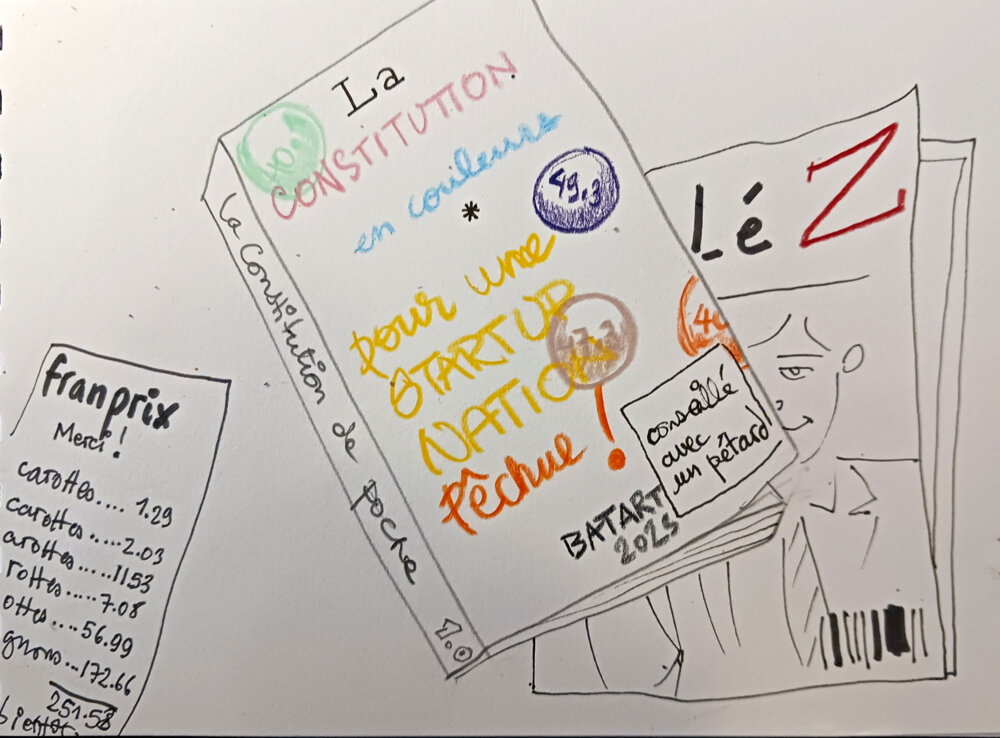 La
CONSTITUTION
en couleurs
*
49.3
pour une
START UP
NATION
pêchue !
conseillé
avec
un pétard
BATART
2025
La Constitution de poche
1.0
Lé Z
franprix
Merci !
carottes.... 1.29
carottes.....2.03
arottes.....11.53
rottes.....7.08
ottes....56.99
gnons...172.66
251.58
bientôt.